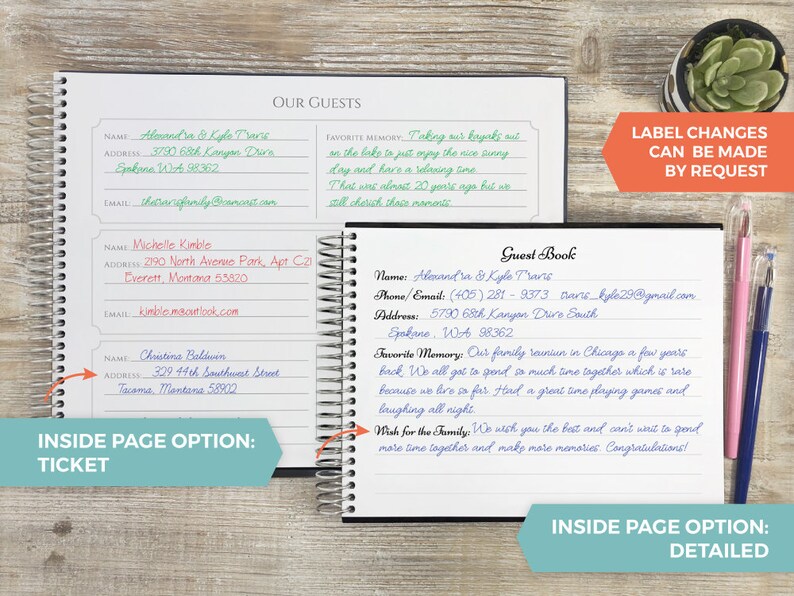 OUR GUESTS
NAME: Alexandra & Kyle Travis
ADDRESS: 3790 68th Kanyon Drive
Spokane, WA 98362
EMAIL: thetravisfamily@comcast.com
FAVORITE MEMORY: Taking our kayaks out
on the lake to just enjoy the nice sunny
day and have a relaxing time.
That was almost 20 years ago but we
still cherish those moments.
NAME: Michelle Kimble
ADDRESS: 2190 North Avenue Park, Apt C21
Everett, Montana 53820
EMAIL: kimble.m@outlook.com
NAME: Christina Baldwin
ADDRESS: 329 44th Southwest Street
Tacoma, Montana 58902
LABEL CHANGES
CAN BE MADE
BY REQUEST
Guest Book
Name: Alexandra & Kyle Travis
Phone/Email: (405) 281 - 9373 travis_kyle29@gmail.com
Address: 5790 68th Kanyon Drive South
Spokane, WA 98362
Favorite Memory: Our family reuniun in Chicago a few years
back. We all got to spend so much time together which is rare
because we live so far. Had a great time playing games and
laughing all night.
Wish for the Family: We wish you the best and can't wait to spend
more time together and make more memories. Congratulations!
INSIDE PAGE OPTION:
TICKET
INSIDE PAGE OPTION:
DETAILED